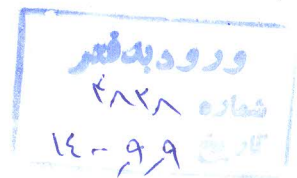 ورود به دفتر
شماره ۴۸۲۸
تاریخ ۱۴۰۰٫۹٫۹